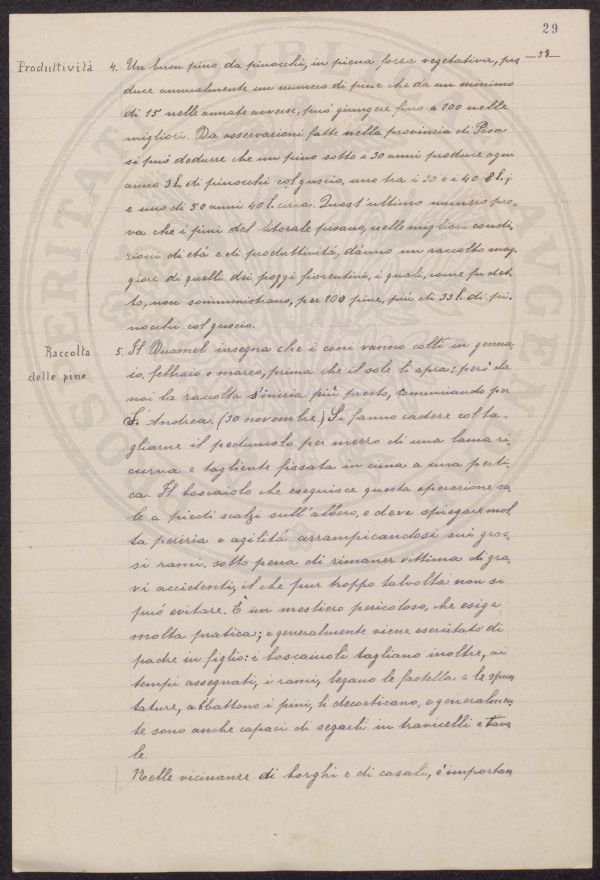 29
59
Produttività
4. Un buon pino da pinocchi, in piena forza vegetativa, pro
duce annualmente un numero di pine che da un minimo
di 15 nelle annate avverse, può giungere fino a 200 nelle
migliori. Da osservazioni fatte nella provincia di Pisa
si può dedurre che un pino sotto i 30 anni produce ogni
anno 3 l. di pinocchi col guscio, uno tra i 30 e i 40 8 l.;
e uno di 50 anni 40 l. circa. Quest'ultimo numero pro-
va che i pini del litorale pisano, nelle migliori condi-
zioni di età e di produttività, dànno un raccolto mag-
giore di quelli dei poggi fiorentini, i quali, come fu det-
to, non somministrano, per 200 pine, più di 33 l. di pi-
nocchi col guscio.
Raccolta
delle pine
5. Il Duamel insegna che i coni vanno colti in genna-
io, febbraio e marzo, prima che il sole li apra; però da
noi la racolta s'inizia più presto, cominciando per
S. Andrea. (30 novembre.) Si fanno cadere col ta-
gliarne il peduncolo per mezzo di una lama ri-
curva e tagliente fissata in cima a una perti-
ca. Il boscaiolo che eseguisce questa operazione sa-
le a piedi scalzi sull'albero, e deve spiegare mol-
ta perizia e agilità arrampicandosi sui gros-
si rami, sotto pena di rimaner vittima di gra-
vi accidenti, il che pur troppo talvolta non si
può evitare. È un mestiero pericoloso, che esige
molta pratica; e generalmente viene esercitato di
padre in figlio: i boscaiuoli tagliano inoltre, ai
tempi assegnati, i rami, legano le fastella e le spun
tature, abbattono i pini, li decorticano, e generalmen
te sono anche capaci di segarli in travicelli e tavo
le.
Nelle vicinanze di borghi e di casali, è importan